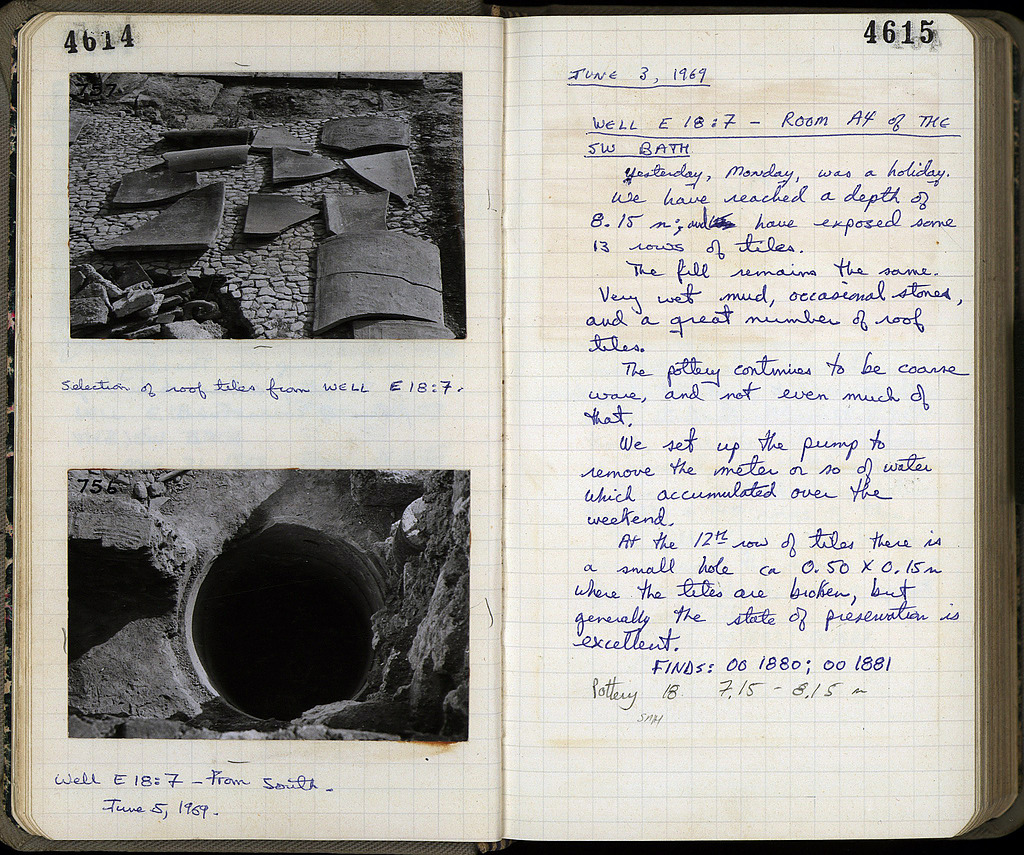 4614
757
Selection of roof tiles from WELL E 18:7.
756
Well E 18:7 – From South.
June 5, 1969.
4615
JUNE 3, 1969
WELL E 18:7 – ROOM A4 of THE
SW BATH
Yesterday, Monday, was a holiday.
We have reached a depth of
8.15 m; and have exposed some
13 rows of tiles.
The fill remains the same.
Very wet mud, occasional stones,
and a great number of roof
tiles.
The pottery continues to be coarse
ware, and not even much of
that.
We set up the pump to
remove the meter or so of water
which accumulated over the
weekend.
At the 12th row of tiles there is
a small hole ca 0.50 X 0.15 m
where the tiles are broken, but
generally the state of preservation is
excellent.
FINDS: OO 1880; OO 1881
Pottery 18 7.15 – 8.15 m